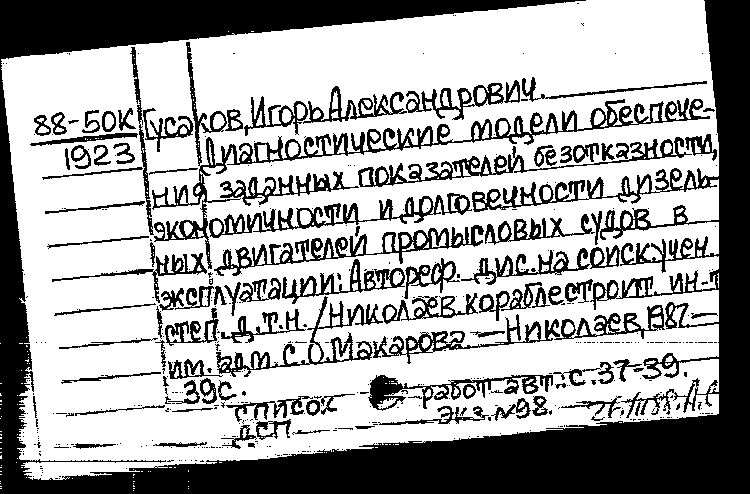 88-50К Гусаков, Игорь Александрович.
1923 Диагностические модели обеспече-
ния заданных показателей безотказности,
экономичности и долговечности дизель-
ных двигателей промысловых судов в
эксплуатации: Автореф. дис. на соиск. учен.
степ. д.т.н. / Николаев. кораблестроит. ин-т
им. адм. С.О. Макарова. — Николаев, 1987. —
39с.
список работ авт.: с. 37-39.
ДСП. экз. №98.